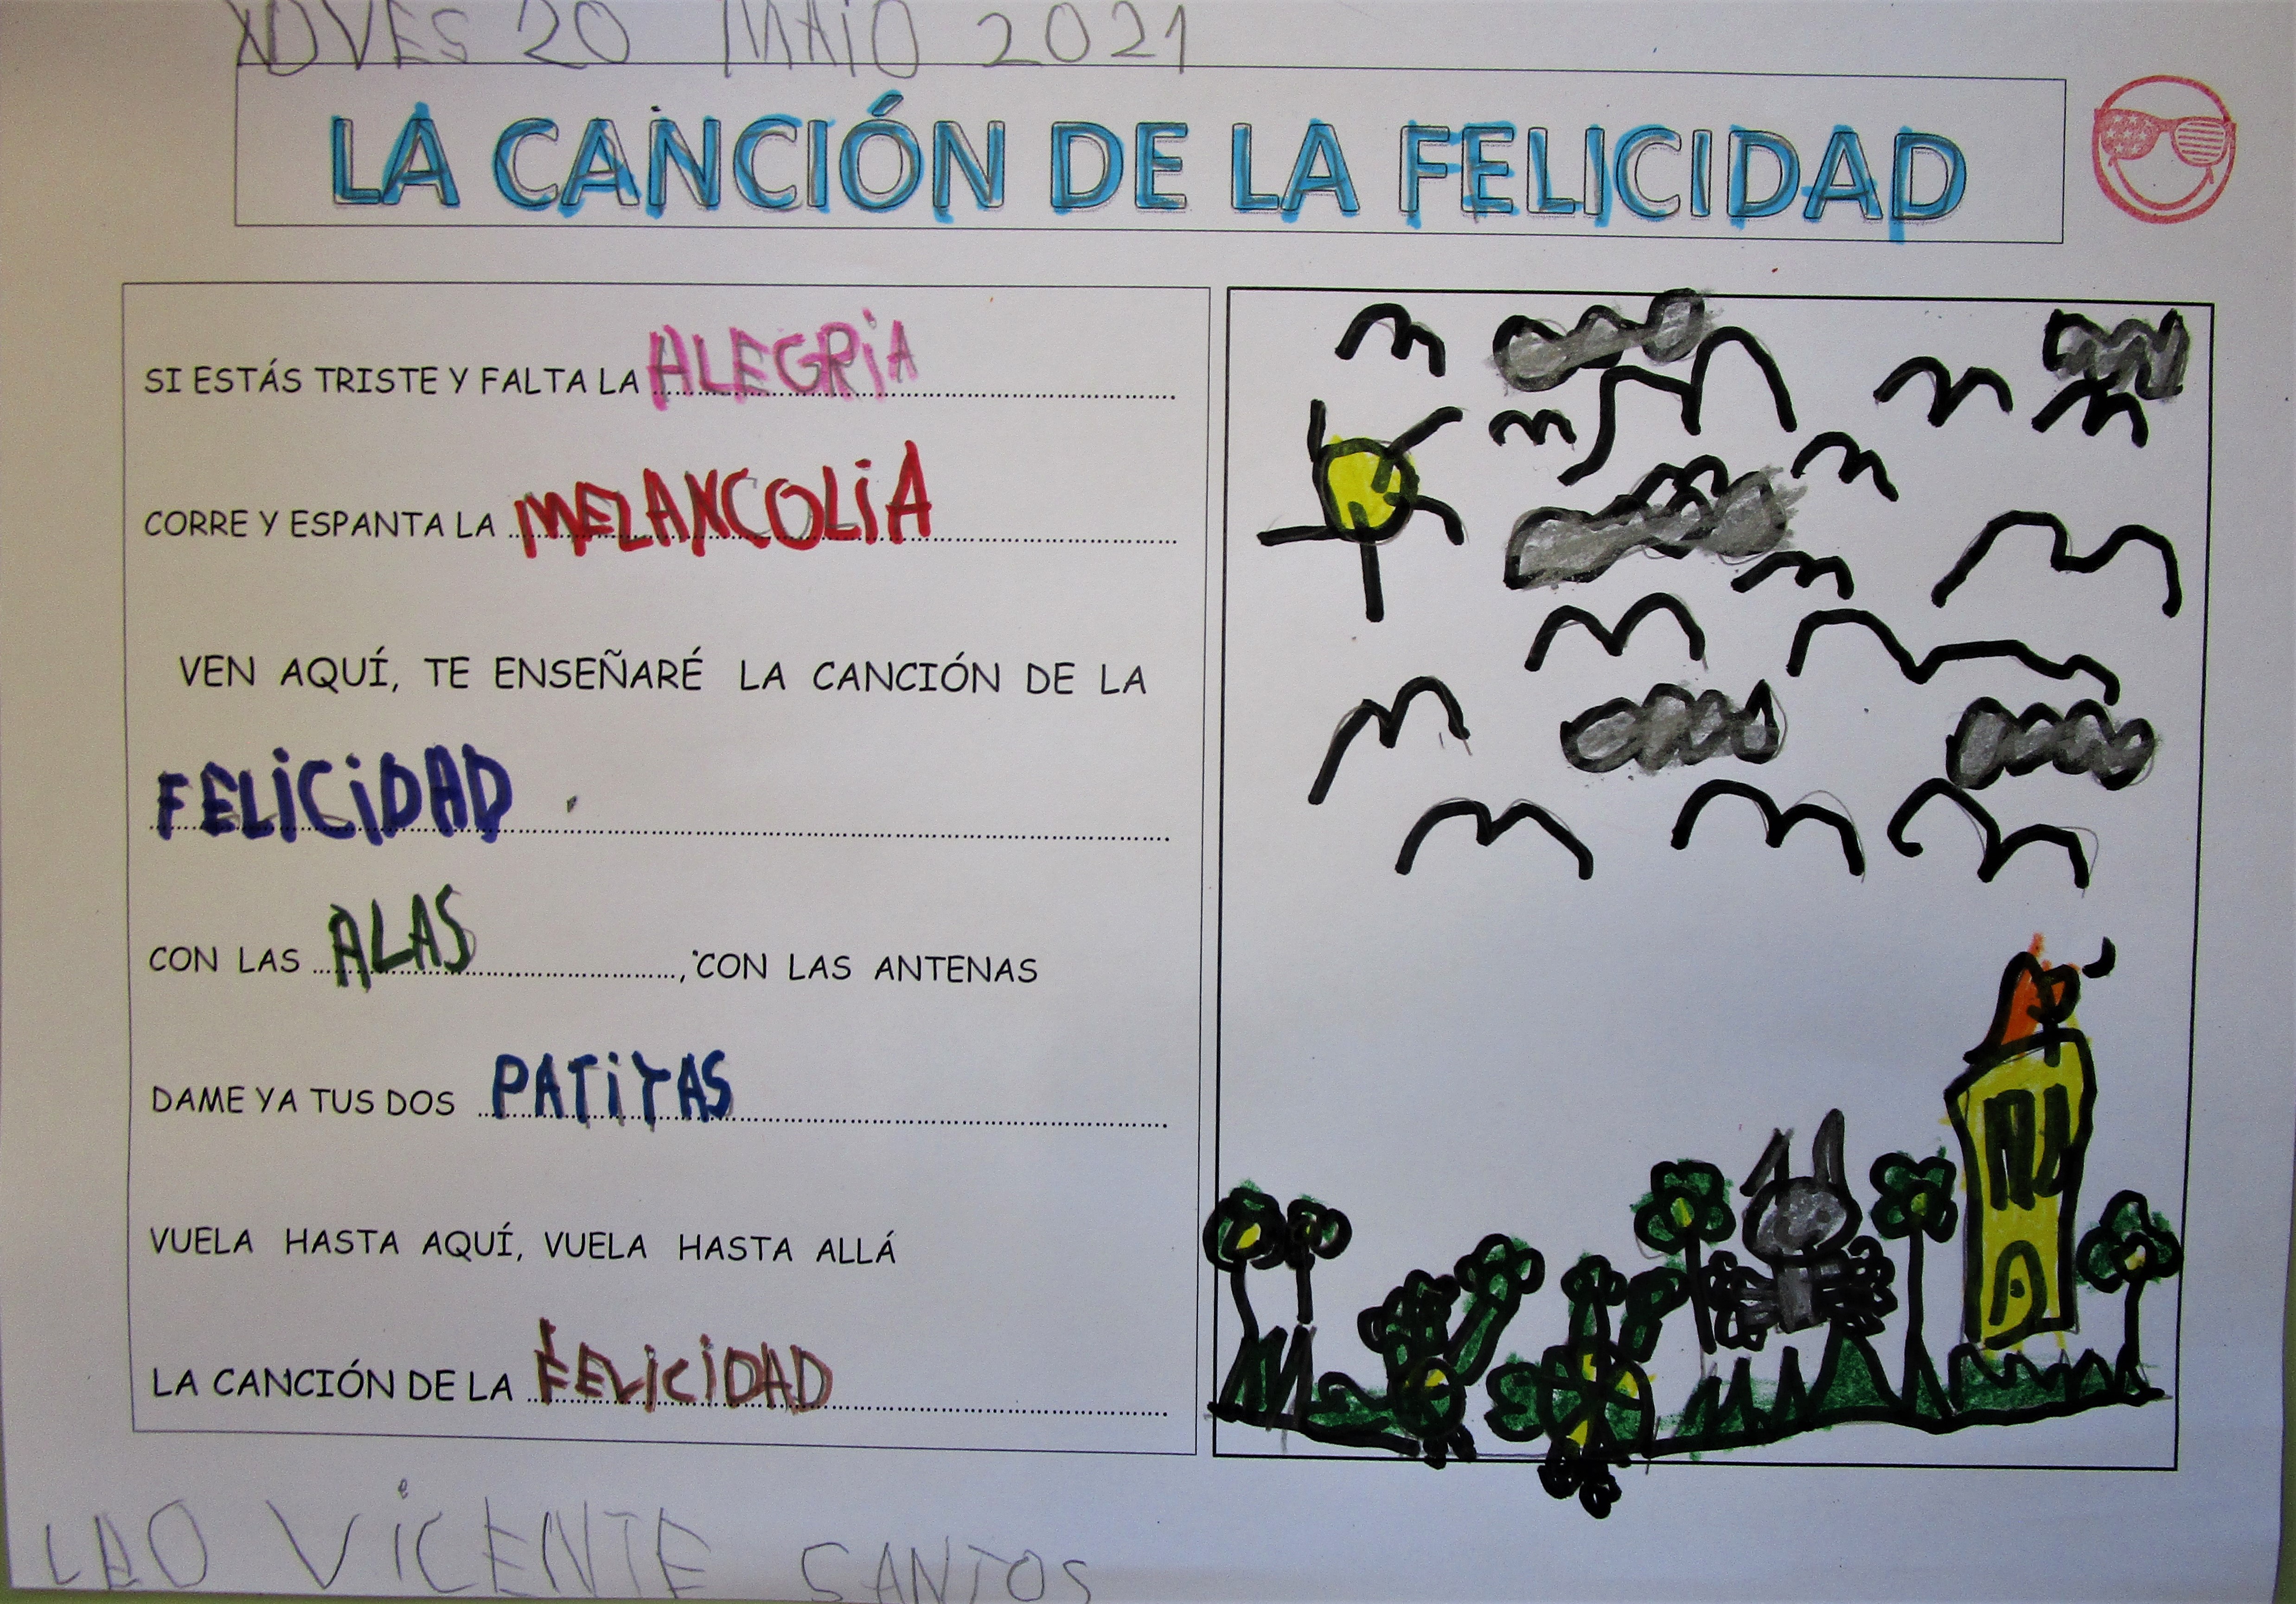 XOVES 20 MAIO 2021
LA CANCIÓN DE LA FELICIDAD
SI ESTÁS TRISTE Y FALTA LA ALEGRIA
CORRE Y ESPANTA LA MELANCOLIA
VEN AQUÍ, TE ENSEÑARÉ LA CANCIÓN DE LA
FELICIDAD
CON LAS ALAS, CON LAS ANTENAS
DAME YA TUS DOS PATITAS
VUELA HASTA AQUÍ, VUELA HASTA ALLÁ
LA CANCIÓN DE LA FELICIDAD
LAO VICENTE SANTOS